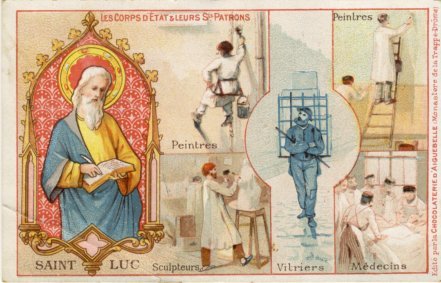 LES CORPS D'ETAT & LEURS Sts PATRONS
Peintres
Peintres
SAINT LUC
Sculpteurs
Vitriers
Médecins
Edité par la CHOCOLATERIE D'AIGUEBELLE (Monastère de la Trappe-Drôme)